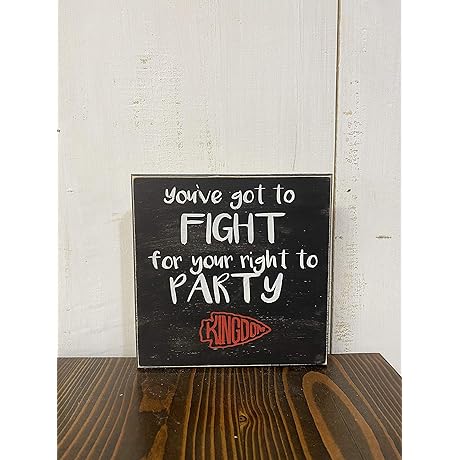 you've got to
FIGHT
for your right to
PARTY
KINGDOM